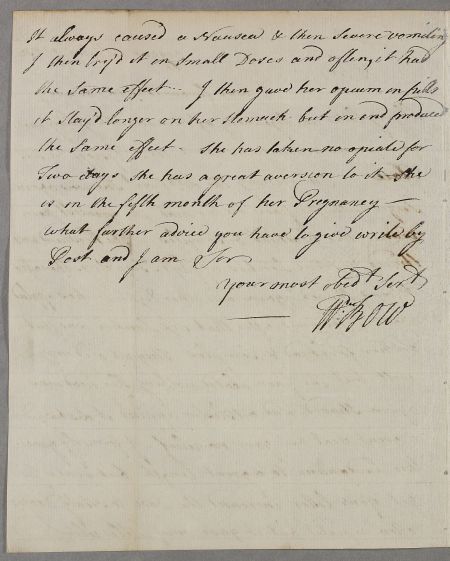 It always caused a Nausea & then Severe vomiting
I then try'd it in Small Doses and often, it had
the Same effect... I then gave her opium in pills
it Stay'd longer on her Stomach but in end produced
the Same effect - She has taken no opiate for
Two days She has a great aversion to it - She
is in the fifth month of her Pregnancy —
what further advice you have to give write by
Post and I am Sir
Your most Obedt. Sert.
Wm.